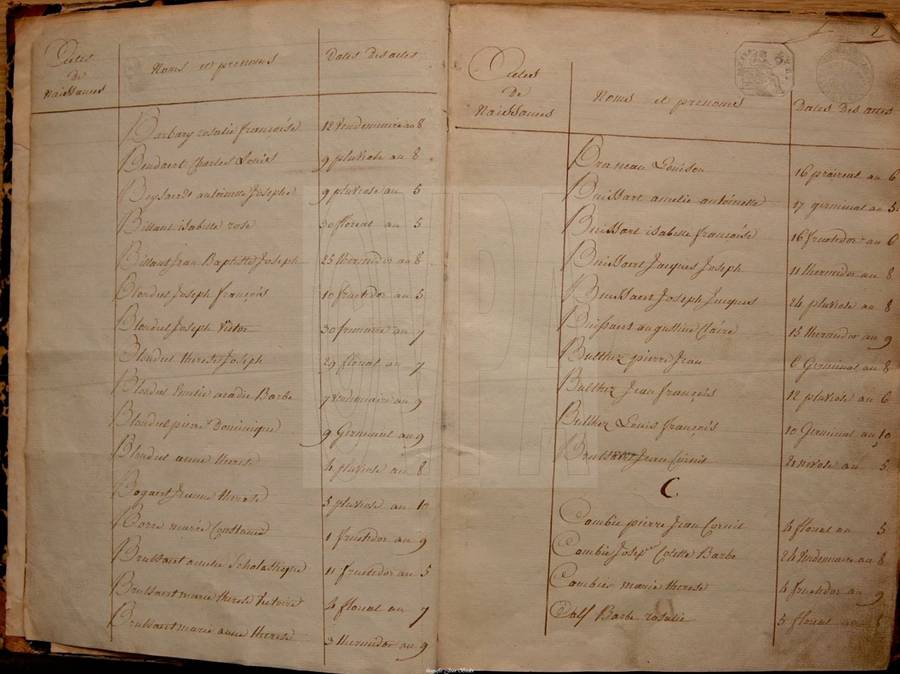 Actes
de
Naissances
Noms et prenoms
Dates des actes
Barbary rosalie françoise 12 Vendemiaire au 8
Bendaert Charles Louis 9 pluviose au 8
antoinette Josephe 9 pluviose au 5
Billaut isabelle rose 30 floreal au 5
Billaut Jean Baptiste Joseph 25 thermidor au 8
Blondus Joseph françois 10 fructidor au 5
Blondus Joseph Victor 30 frimaire au 7
Blondus therese Joseph 29 floreal au 7
Blondus Barbe Vendemiaire au 9
Blondus pierre Dominique 9 Germinal au 9
Blondus anne therese 4 pluviose au 8
Bogaert therese 5 pluviose au 10
Borre marie Constance 1 fructidor au 9
Brussaert amelie Scholastique 11 fructidor au 5
Brussaert marie therese Victoire 4 floreal au 7
Brussaert marie anne therese 3 thermidor au 9
2
Actes
de
Naissances
Noms et prenoms
Dates des actes
Bruneau Louison 16 prairial au 6
Buissart amelie antoinette 17 germinal au 5
Buissart isabelle françoise 16 fructidor au 6
Buissaert Jacques Joseph 11 thermidor au 8
Buissaert Joseph Jacques 24 pluviose au 8
Buissaert augustine Claire 15 thermidor au 9
Bulthez pierre Jean 6 Germinal au 8
Bulthez Jean françois 12 pluviose au 6
Bulthez Louis françois 10 Germinal au 10
Jean Cornil nivose au 5
C
Combie pierre Jean Cornil 4 floreal au 5
Combie Josep Colette Barbe 24 Vendemiaire au 8
Combier marie therese 4 fructidor au 9
Calf Barbe rosalie 5 floreal au